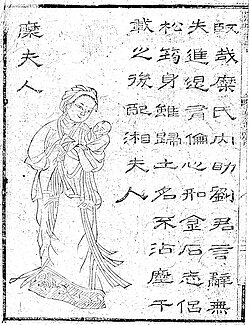 臤哉糜氏內助劉君言辭無
失進退有倫心金石志侶
松筠身雖歸土名不沾塵千
載之後配湘夫人
糜夫人